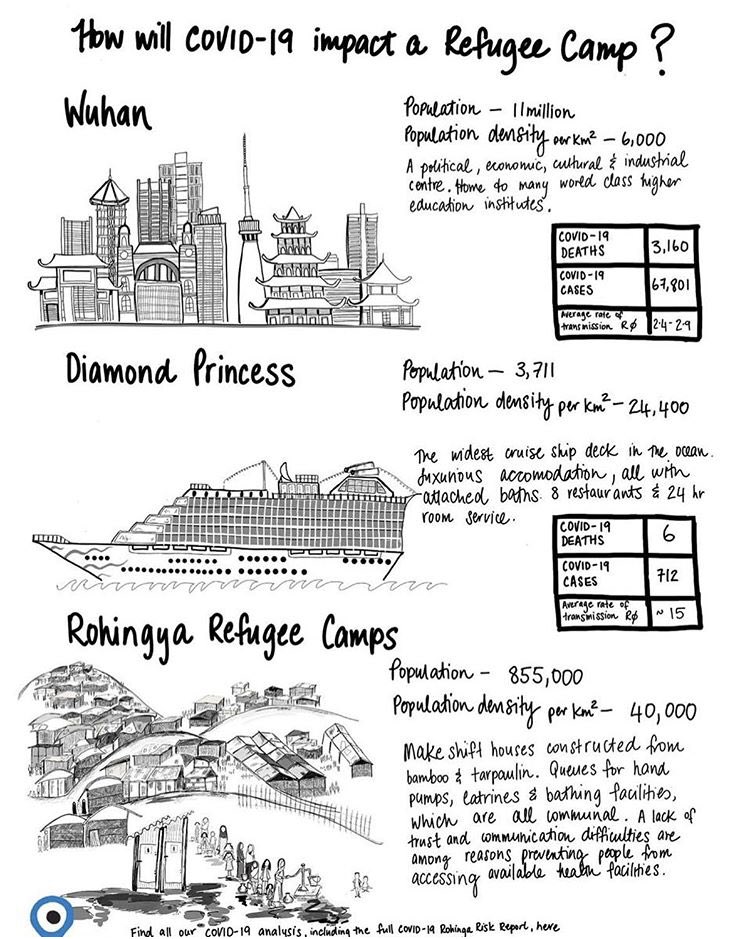 How will COVID-19 impact a Refugee Camp?
Wuhan
Population – 11million
Population density per km² – 6,000
A political, economic, cultural & industrial
centre. Home to many world class higher
education institutes.
COVID-19 DEATHS 3,160
COVID-19 CASES 67,801
Average rate of transmission RØ 2.4-2.9
Diamond Princess
Population – 3,711
Population density per km² – 24,400
The widest cruise ship deck in the ocean.
Luxurious accomodation, all with
attached baths. 8 restaurants & 24 hr
room service.
COVID-19 DEATHS 6
COVID-19 CASES 712
Average rate of transmission RØ ~15
Rohingya Refugee Camps
Population – 855,000
Population density per km² – 40,000
Make shift houses constructed from
bamboo & tarpaulin. Queues for hand
pumps, latrines & bathing facilities,
which are all communal. A lack of
trust and communication difficulties are
among reasons preventing people from
accessing available health facilities.
Find all our COVID-19 analysis, including the full COVID-19 Rohinga Risk Report, here